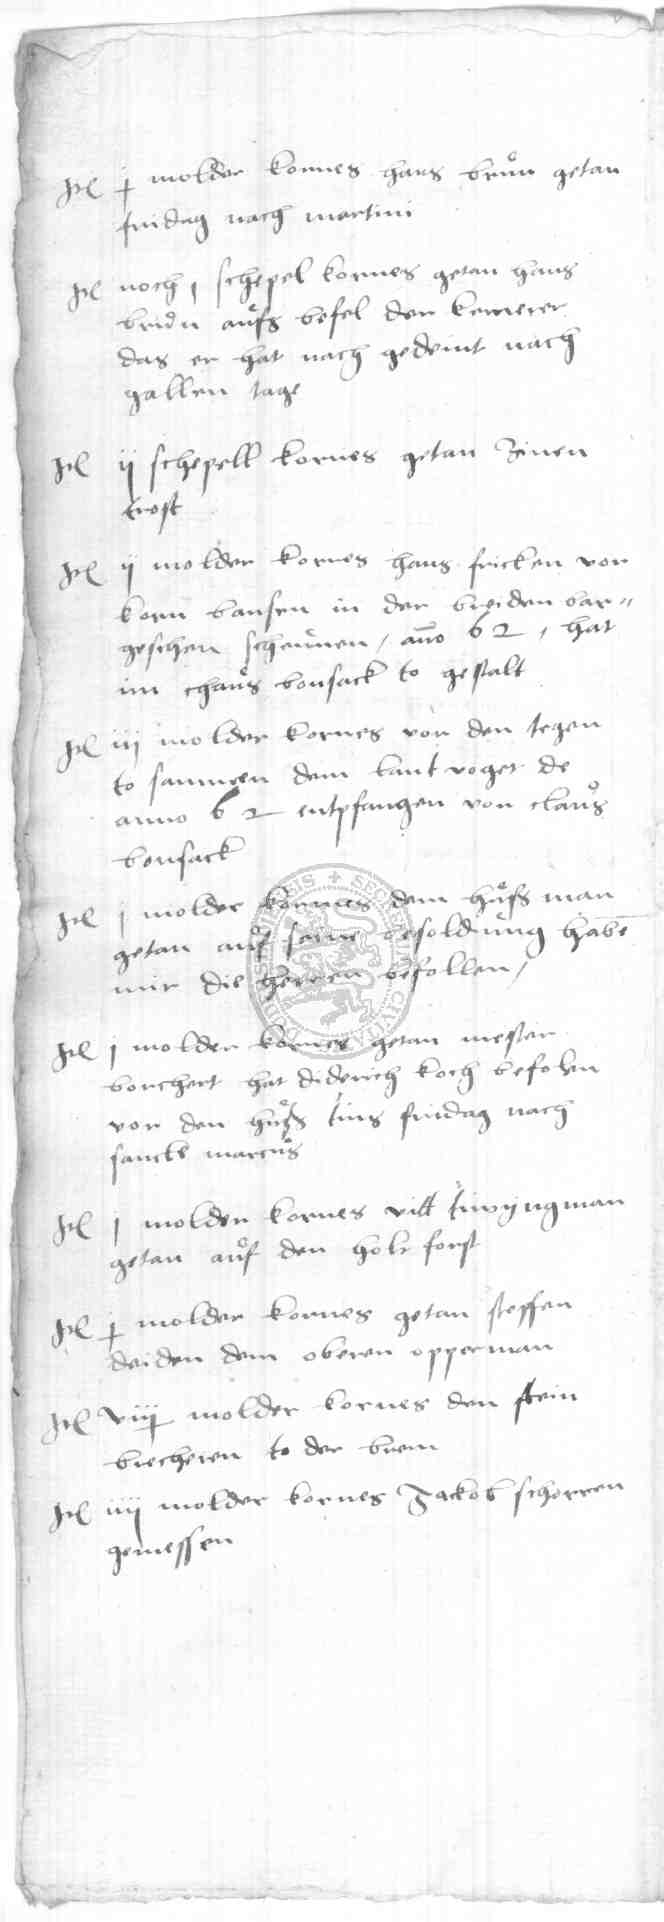 It j molder kornes hans brun getan
fridag nach martini
It noch j schepel kornes getan hans
brun aufs befel der kemerer
das er hat nach gedeint nach
gallen tage
It ij schepell kornes getan Zinen
trost
It ij molder kornes hans fricken von
korn bansen in der breiden bar-
geschen scheunen / ano 62 / hat
im chaus bonsack to gestalt
It iij molder kornes von den tegen
to sammen dem lant voget de
anno 62 entpfangen von claus
bonsack
It j molder kornnes dem huss man
getan auf seine besoldung habe
mir die herren befollen /
It j molder kornes getan mester
borchert hat diderich koch befolen
vor den huss tins fridag nach
sancts marcus
It j molder kornes vitt twyngman
getan auf den holt forst
It j molder kornes getan steffen
deiden dem oberen opperman
It viij molder kornes den stein
brecheren to der brem
It iiij molder kornes Jackob schorren
gemessen
SECRETUM CIVITATIS